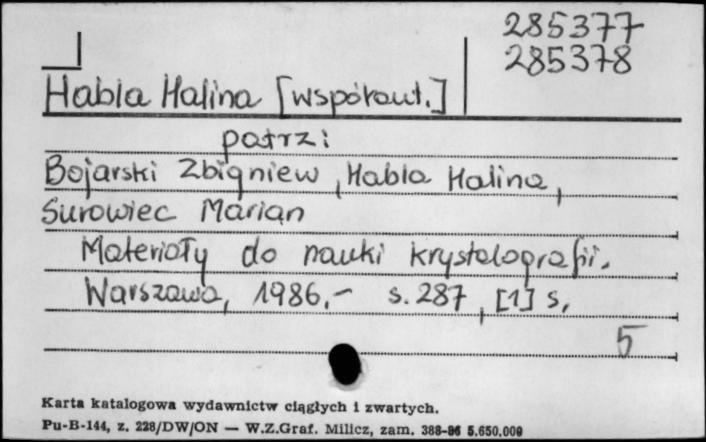 285377
285378
Habla Halina [współaut.]
patrz:
Bojarski Zbigniew, Habla Halina,
Surowiec Marian
Materiały do nauki krystalografii.
Warszawa, 1986.- s. 287, [1] s,
5
Karta katalogowa wydawnictw ciągłych i zwartych.
Pu-B-144, z. 228/DW/ON — W.Z.Graf. Milicz, zam. 388-86 5.650.000